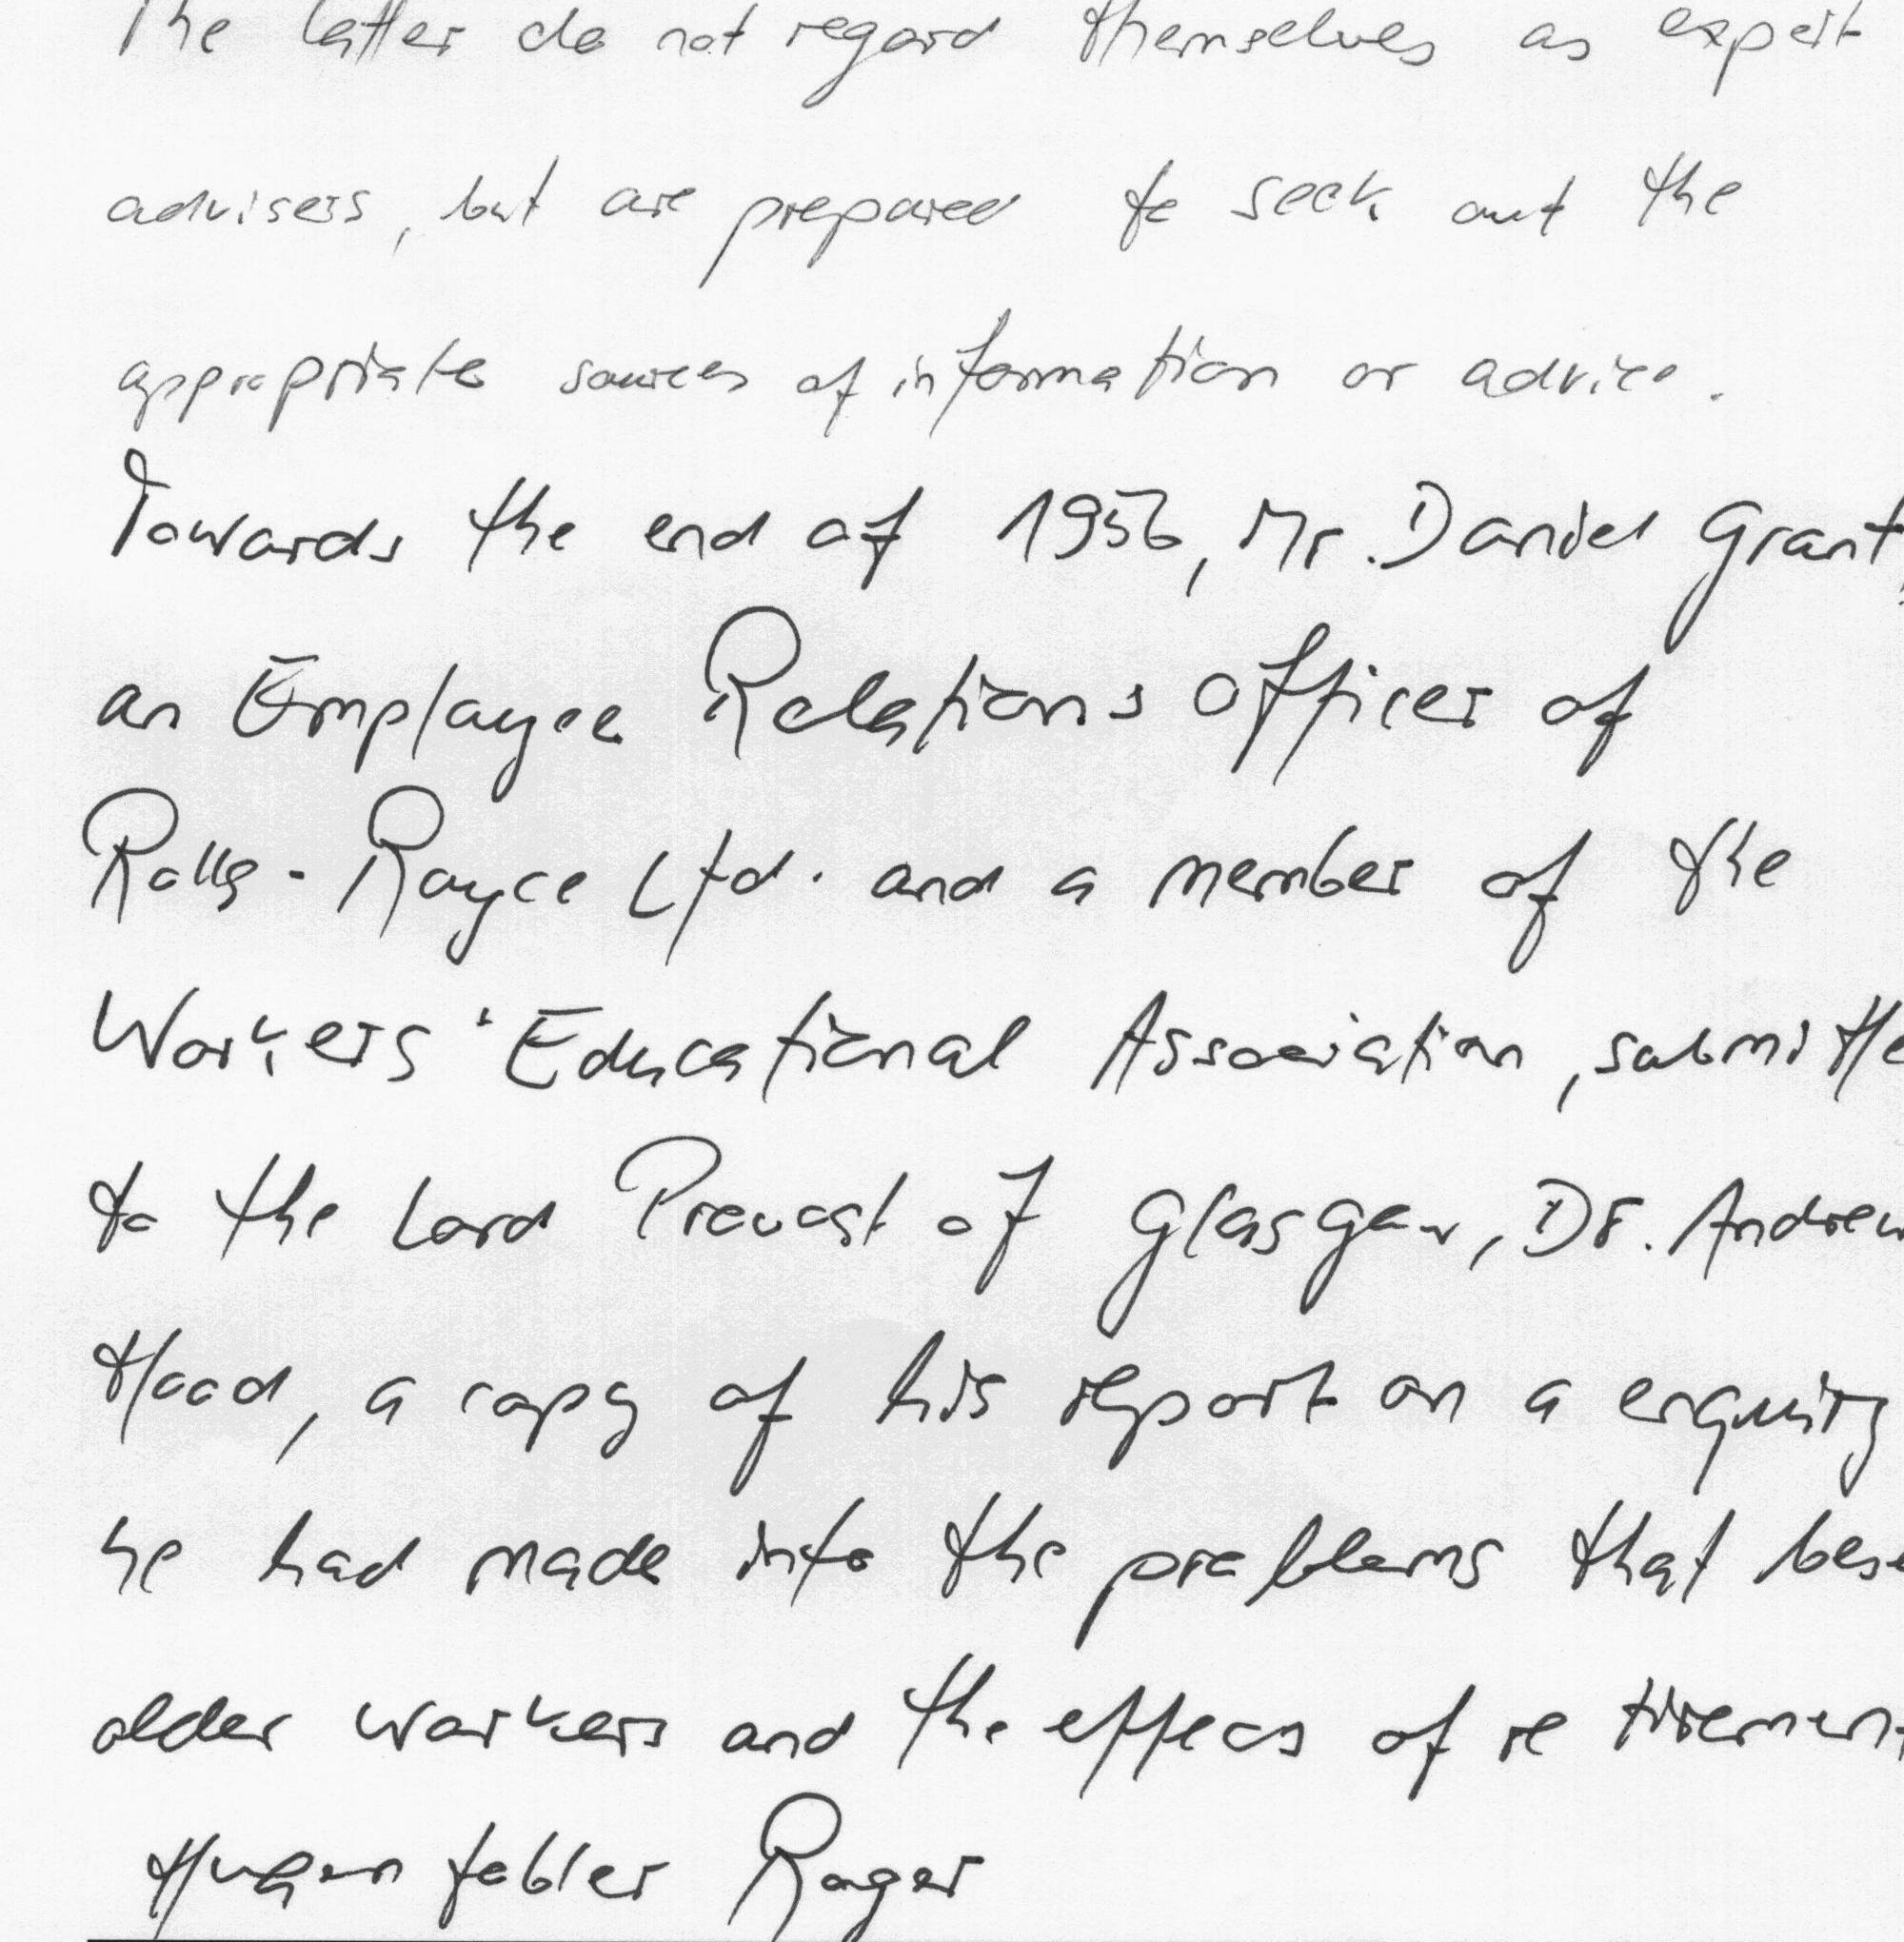 The latter do not regard themselves as expert
advisers, but are prepared to seek out the
appropriate sources of information or advice.
Towards the end of 1956, Mr. Daniel Grant,
an Employee Relations Officer of
Rolls-Royce Ltd. and a member of the
Workers' Educational Association, submitte
to the Lord Provost of Glasgow, Dr. Andrew
Hood, a copy of his report on a enquiry
he had made into the problems that bese
older workers and the effecs of re tiremen
Roger